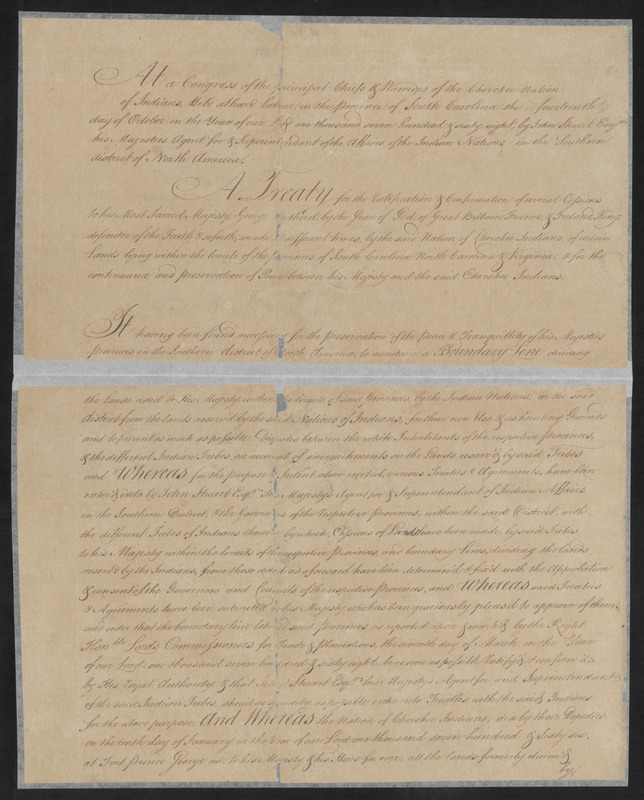 At a Congress of the principal Chiefs & Warriors of the Cherokee Nation
of Indians, Held at Hard Labour, in the province of South Carolina the fourteenth
day of October in the Year of our Lord one thousand seven hundred & sixty eight, by John Stuart Esqr.
his Majesties Agent for & Superintendant of the Affairs of the Indian Nations, in the Southern
district of North America.
A Treaty for the Ratification & Confirmation of several Cessions
to his Most Sacred Majesty George the third, by the Grace of God of Great Britain, France, & Ireland, King
defender of the Faith & so forth, made at different times, by the said Nation of Cherokee Indians, of certain
Lands lying within the limits of the provinces of South Carolina North Carolina & Virginia & for the
continuance and preservation of Peace between his Majesty and the said Cherokee Indians.
It having been found necessary for the preservation of the peace & Tranquillity of his Majesties
Provinces in the Southern district of North America, to ascertain a Boundary Line dividing
the lands ceded to His Majesty within the limits of said provinces, by the Indian Nations, in the said
district from the lands reserv'd by the said Nations of Indians, for their own Use & as hunting Grounds
and to prevent as much as possible Disputes between the white Inhabitants of the respective provinces,
& the different Indian Tribes, on account of encroachments on the Lands reserv'd by said Tribes
and Whereas for the purpose & Intent above recited, various Treaties & Agreements, have been
enter'd into by John Stuart Esqr. His Majestys Agent for & Superintendant of Indian Affairs
in the Southern District, & the Governors of the respective provinces, within the said District, with
the different Tribes of Indians therein by which Cessions of Land have been made, by said Tribes
to his Majesty within the limits of the respective Provinces, and boundary Lines, dividing the Lands
reserv'd by the Indians, from those ceded as aforesaid have been determin'd & fix'd with the Approbation
& consent of the Governors and Councils of the respective Provinces, and Whereas said Treaties
& Agreements have been submitted to his Majesty who has been graciously pleas'd to approve of them,
and order that the boundary line between said provinces as reported upon & mark'd by the Right
Honble. Lords Commissioners for Trade & Plantations, the seventh day of March in the Year
of our Lord one thousand seven hundred & sixty eight, be as soon as possible Ratify'd & Confirm'd
by His Royal Authority & that John Stuart Esqr. his Majestys Agent for and Superintendant
of the said Indian Tribes, should as speedily as possible enter into Treaties with the said Indians
for the above purpose. And Whereas the Nation of Cherokee Indians, did by their Deputies
on the tenth day of January in the Year of our Lord one thousand seven hundred & Sixty six,
at Fort Prince George cede to his Majesty & his Heirs for ever, all the lands formerly claim'd
by